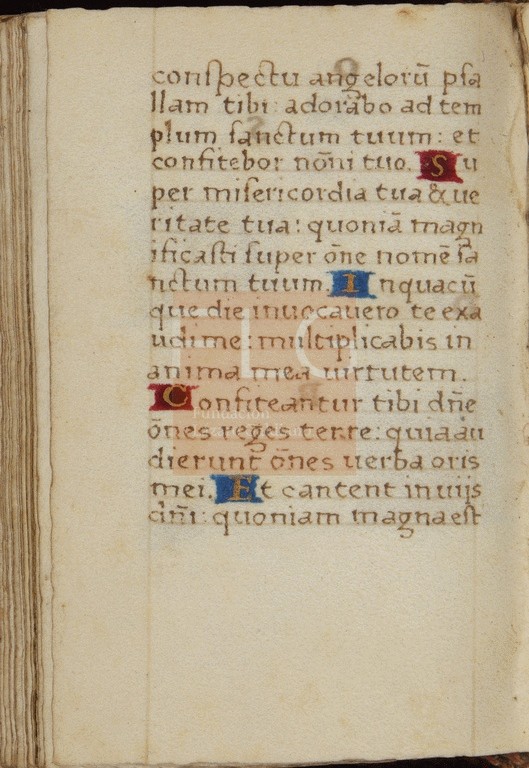 conſpectu angeloꝝū pſa
llam tibi: adorabo ad tem
plum ſanctum tuum: et
confitebor nōni tuo. Su
per miſericordia tua & ue
ritate tua: quoniā magn
ificaſti ſuper ōne nomē ſa
nctum tuum. Inquacū
que die inuocauero te exa
udi me: multiplicabis in
anima mea uirtutem.
Confiteantur tibi dn̄e
ōnes reges terre: quia au
dierunt ōnes uerba oris
mei. Et cantent in uijs
dn̄i: quoniam magna est
FLG
Fundación